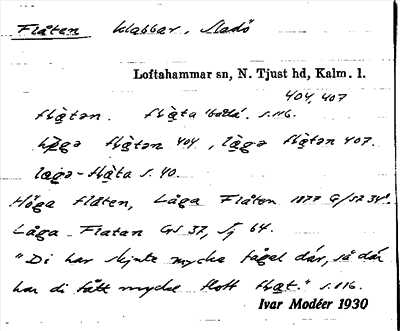 Flåten klabbar, Sladö
Loftahammar sn, N. Tjust hd, Kalm. l.
404, 407
flɑ̀tən. flɑ̀ta 'bodd'. s. 116.
hø̀gə flɑ̀tən 404, lɑ̀gə flɑ̀tən 407.
lɑgə-flɑ̀ta s. 40.
Höga flåten, Låga Flåten 1877 G/52 34a.
Låga Flatan GS 37, Sj 64.
"Di har skjute mycke fågel där, så där
har di fått mycke flott flɑt." s. 116.
Ivar Modéer 1930